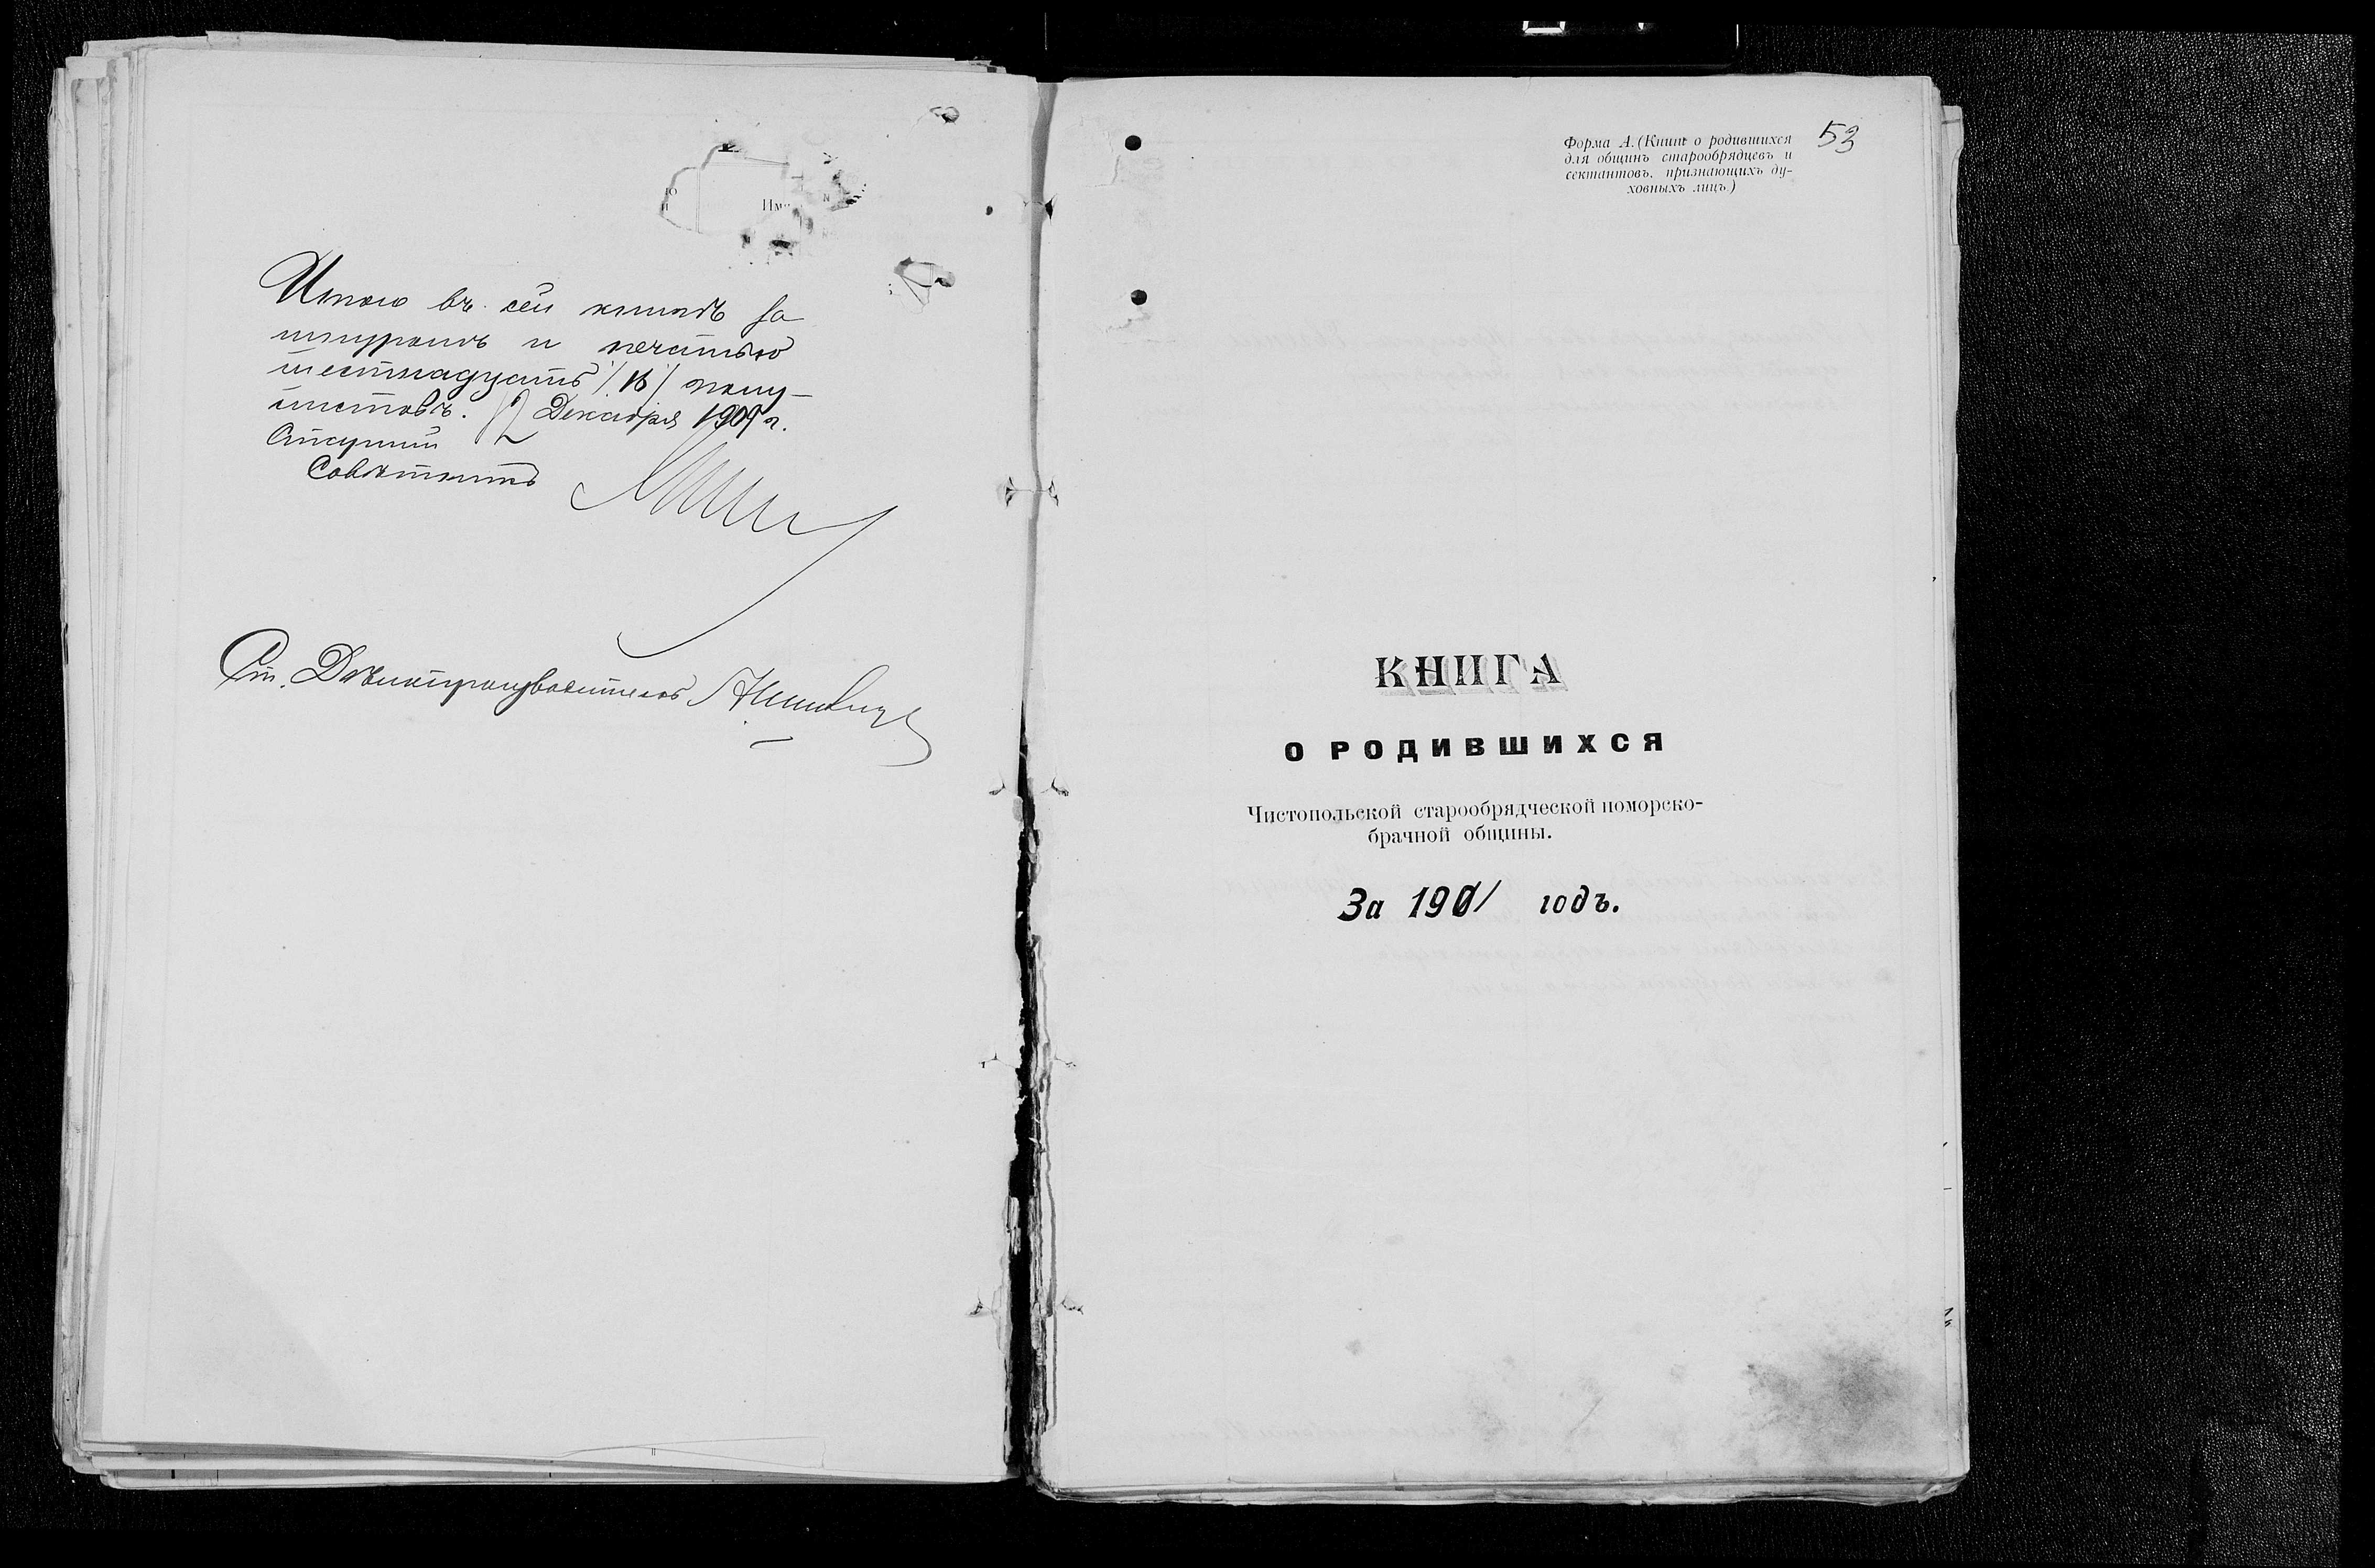 Итого въ сей книгѣ за
шнуромъ и печатью
шестнадцать /16/ полу-
листовъ. 12 Декабря 1909 г.
Совѣтникъ
Ст. Дѣлопроизводитель
53
Форма А. (Книга о родившихся
для общинъ старообрядцевъ и
сектантовъ, признающихъ ду-
ховныхъ лицъ)
КНИГА
О РОДИВШИХСЯ
Чистопольской старообрядческой поморско-
брачной общины.
За 19 годъ.